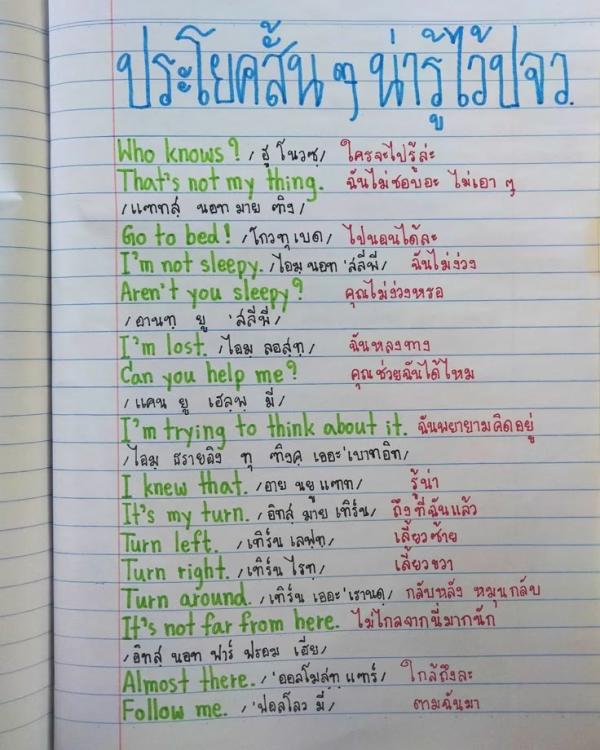 ประโยคสั้น ๆ น่ารู้ไว้ปจว.
Who knows? /ฮู โนวซฺ/ ใครจะไปรู้ล่ะ
That's not my thing. ฉันไม่ชอบอะ ไม่เอา ๆ
/แฑทสฺ นอท มาย ฑิง/
Go to bed! /โกวทุเบด/ ไปนอนได้ละ
I'm not sleepy. /ไอมฺ นอท 'สลีพี่/ ฉันไม่ง่วง
Aren't you sleepy? คุณไม่ง่วงหรอ
/อานทฺ ยู 'สลีพี่/
I'm lost. /ไอมฺ ลอสฺทฺ/ ฉันหลงทาง
Can you help me? คุณช่วยฉันได้ไหม
/แคน ยู เฮลฺพฺ มี่/
I'm trying to think about it. ฉันพยายามคิดอยู่
/ไอมฺ ธรายอิง ทุ ฑิงคฺ เออะ'เบาทอิท/
I knew that. /อาย นยู แฑท/ รู้น่า
It's my turn. /อิทสฺ มาย เทิร์น/ ถึงที่ฉันแล้ว
Turn left. /เทิร์น เลฟฺทฺ/ เลี้ยวซ้าย
Turn right. /เทิร์น ไรทฺ/ เลี้ยวขวา
Turn around. /เทิร์น เออะ'เรานดฺ/ กลับหลัง หมุนกลับ
It's not far from here. ไม่ไกลจากนี่มากนัก
/อิทสฺ นอท ฟาร์ ฟรอม เฮีย/
Almost there. /'ออลโมสฺทฺ แฑร์/ ใกล้ถึงละ
Follow me. /'ฟอลโลว มี่/ ตามฉันมา